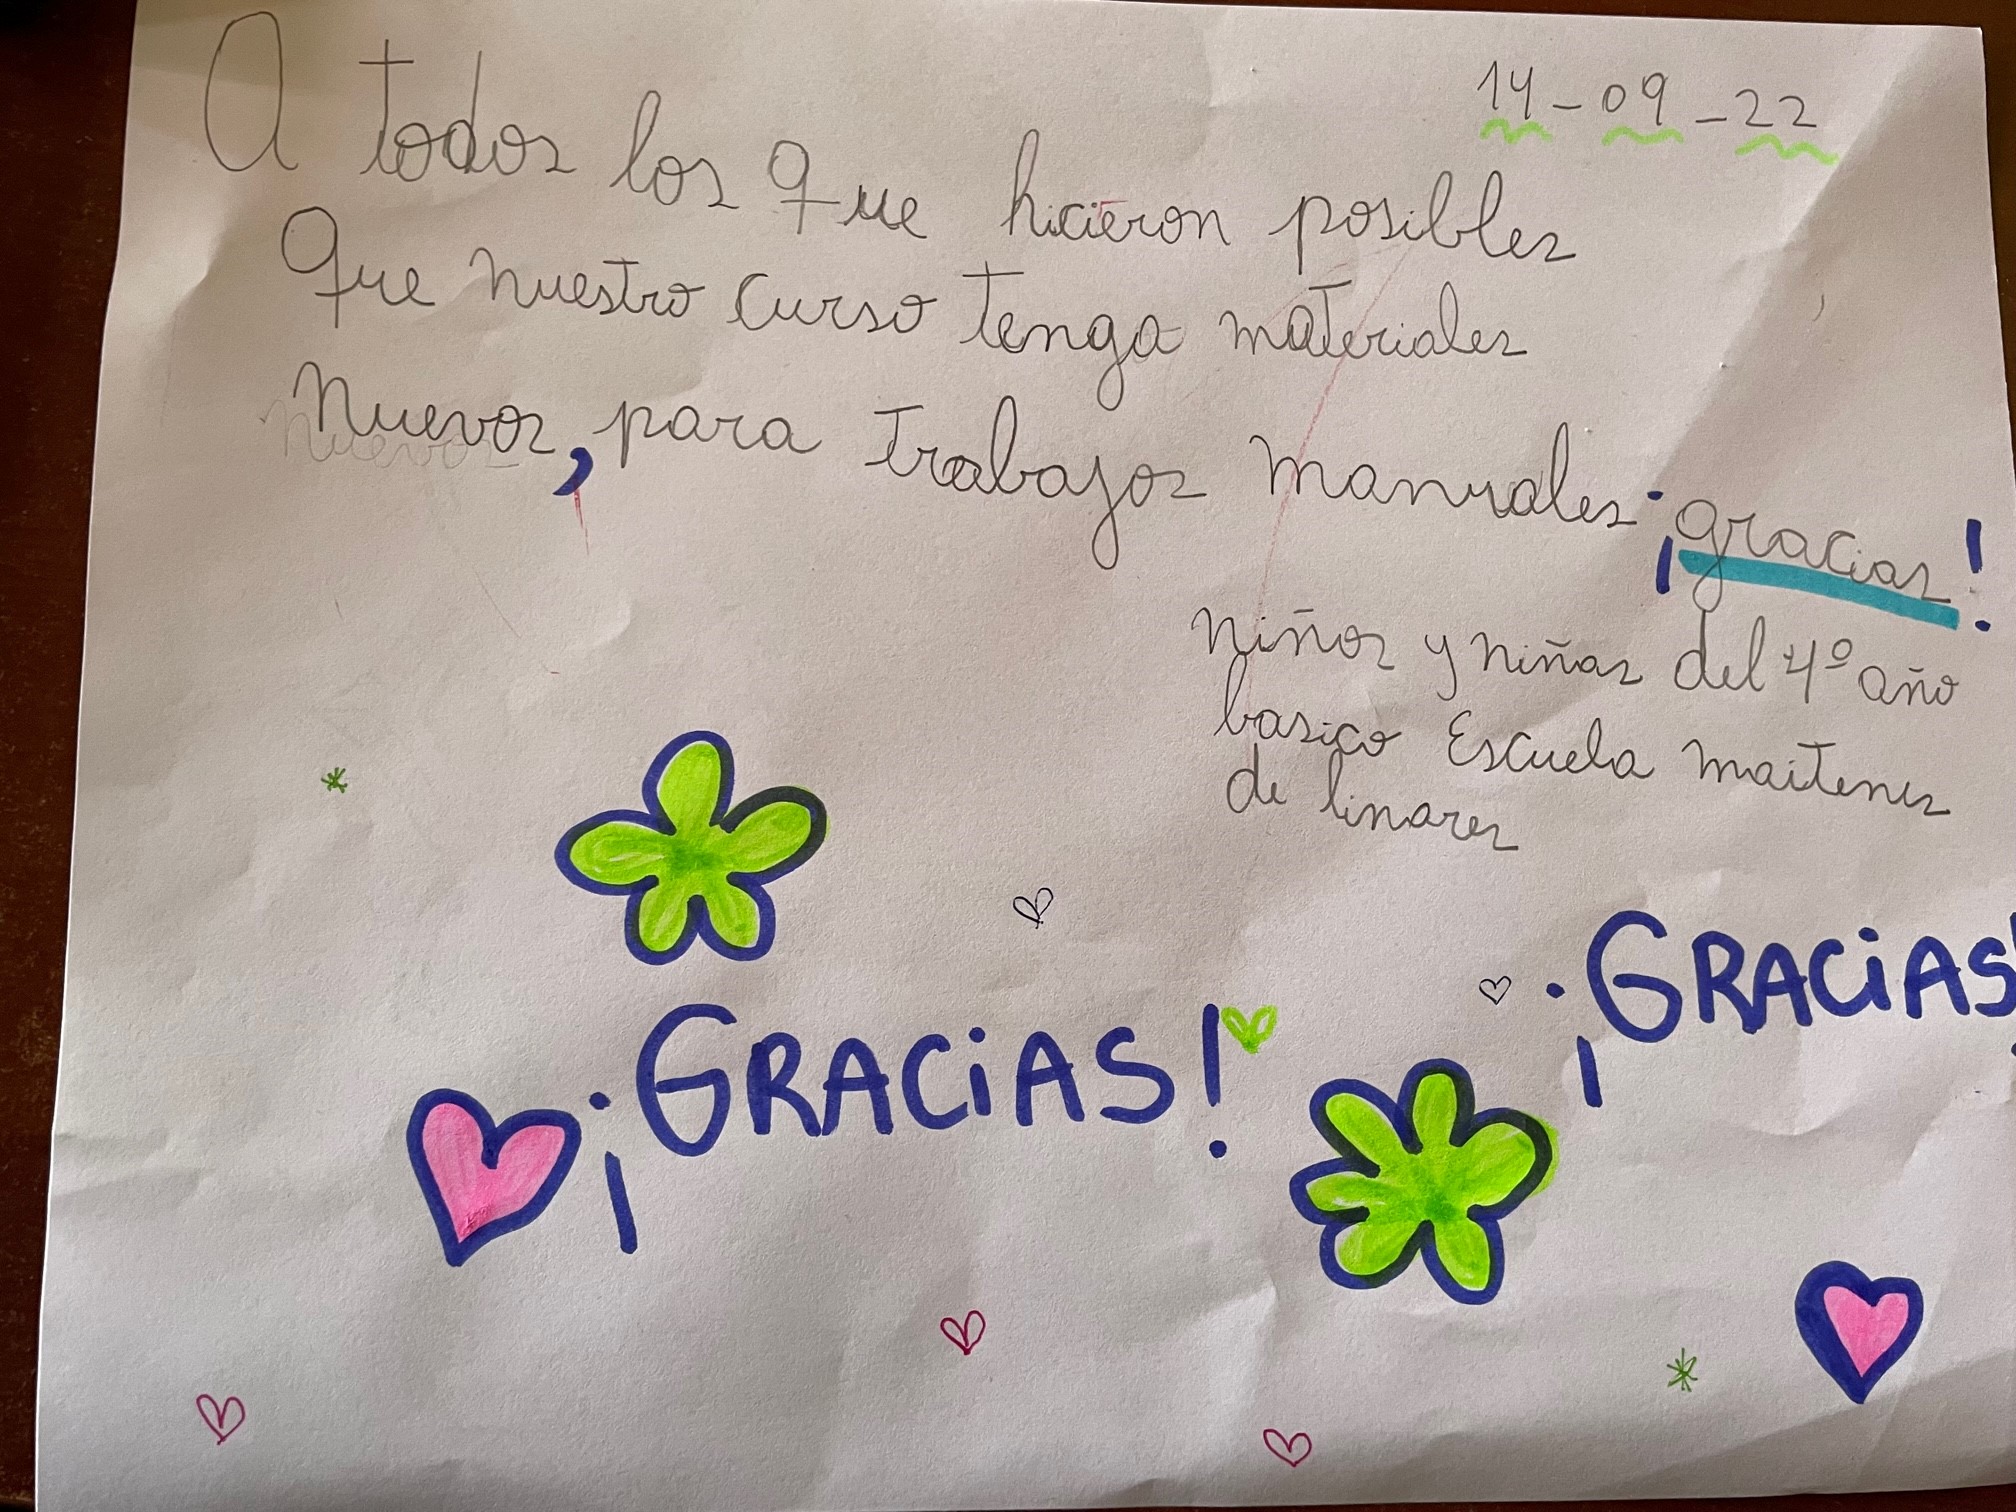 14-09-22
A todos los que hicieron posibles
que nuestro curso tenga materiales
nuevos, para trabajos manuales ¡gracias!
niños y niñas del 4º año
basico Escuela maitenes
de linares
¡GRACiAS!
¡GRACiAS!